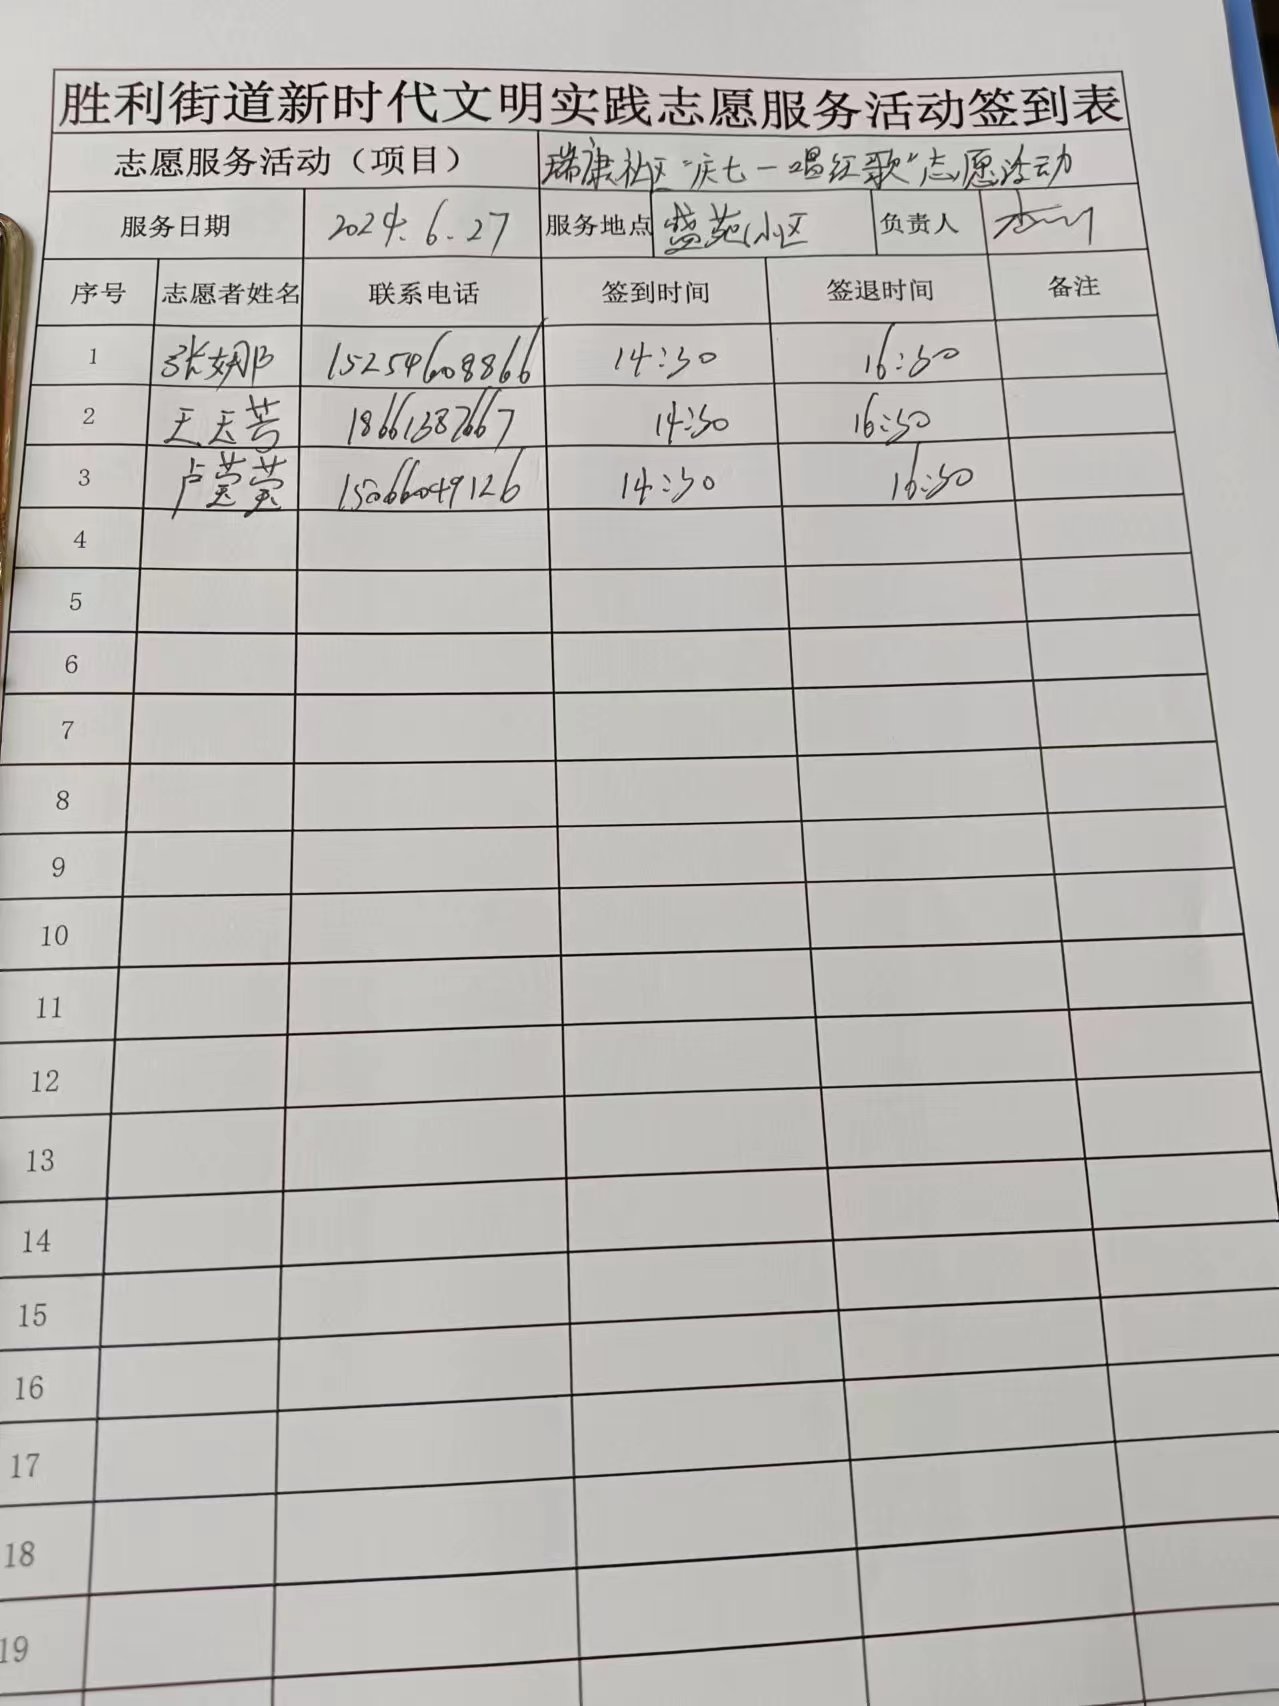 胜利街道新时代文明实践志愿服务活动签到表
志愿服务活动（项目） 瑞康社区“庆七一唱红歌”志愿活动
服务日期 2024.6.27 服务地点 盛苑小区 负责人
序号 志愿者姓名 联系电话 签到时间 签退时间 备注
1 张娜 15254608866 14:30 16:30
2 18661387667 14:30 16:30
3 卢莹莹 15066049126 14:30 16:30
4
5
6
7
8
9
10
11
12
13
14
15
16
17
18
19